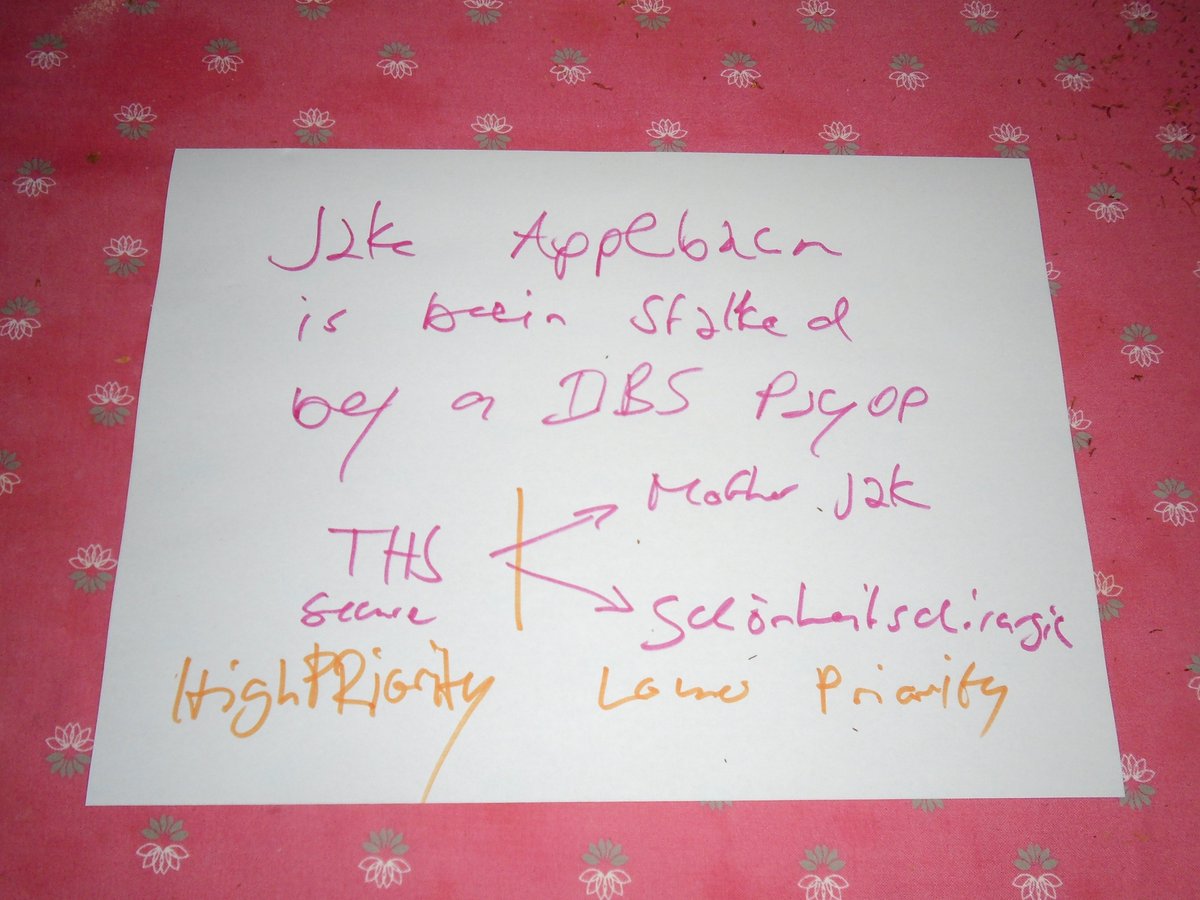 Jake Applebaem
is beein stalked
by a DBS Psyop
Mother Jak
THS
secure
Schönheitschirurgie
HighPRiority Lower Priority